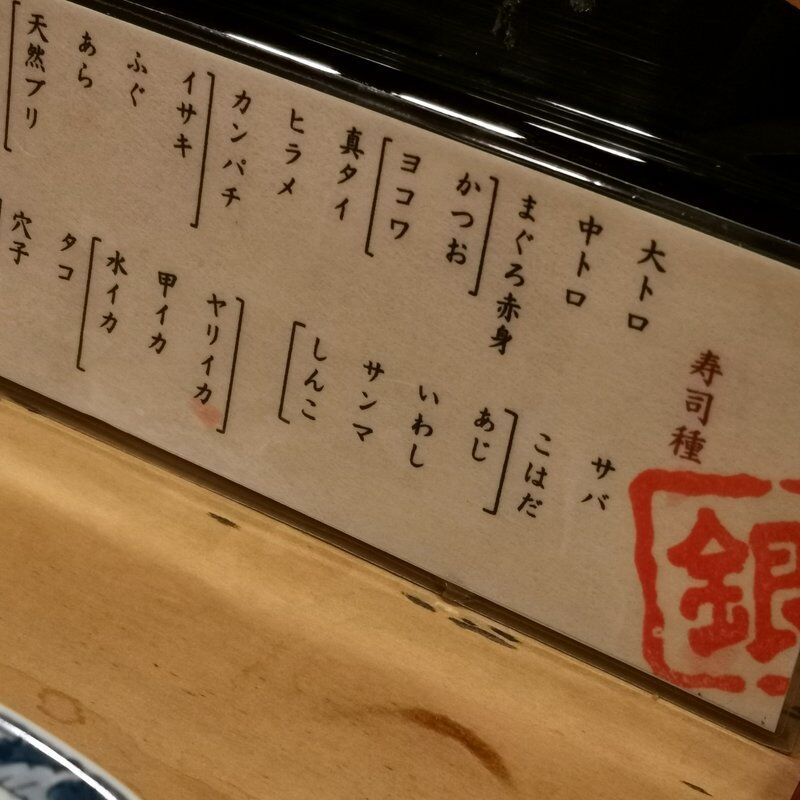 寿司種
大トロ
中トロ
まぐろ赤身
かつお
ヨコワ
真タイ
ヒラメ
カンパチ
イサキ
ふぐ
あら
天然ブリ
サバ
こはだ
あじ
いわし
サンマ
しんこ
ヤリイカ
甲イカ
水イカ
タコ
穴子
銀